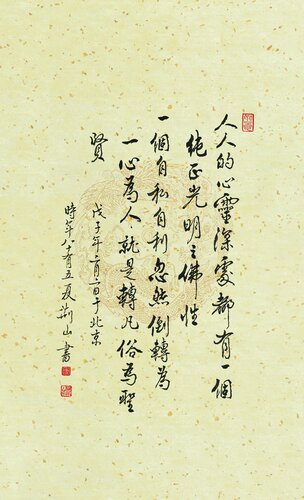 人人的心靈深處都有一個
純正光明之佛性
一個自私自利忽然倒轉為
一心為人就是轉凡俗為聖
賢
戊子年二月二日于北京
時年八有五夏荊山書